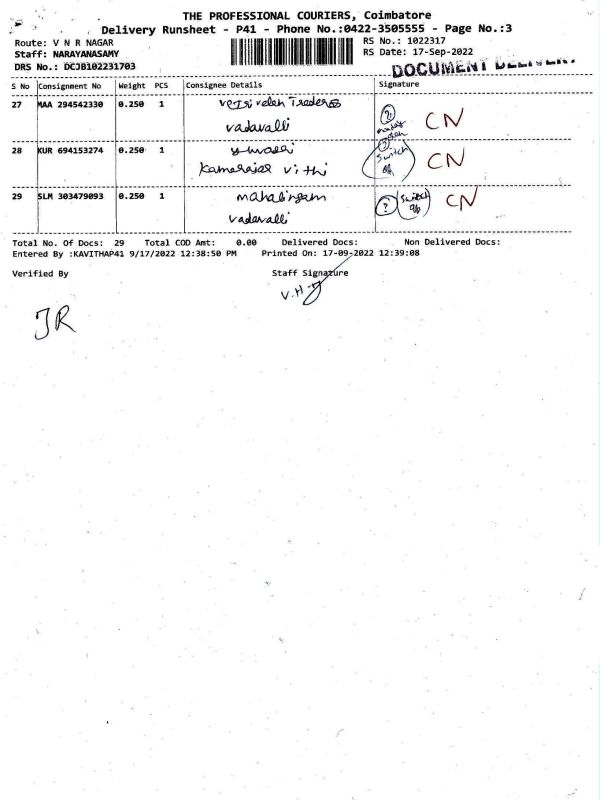 THE PROFESSIONAL COURIERS, Coimbatore
Delivery Runsheet - P41 - Phone No.:0422-3505555 - Page No.:3
Route: V N R NAGAR RS No.: 1022317
Staff: NARAYANASAMY RS Date: 17-Sep-2022
DRS No.: DCJB102231703 DOCUMENT
S No Consignment No Weight PCS Consignee Details Signature
27 MAA 294542330 0.250 1 Vetrivelan Traders CN
vadavalli
28 KUR 694153274 0.250 1 Switch off CN
Kamarajar Vithi
29 SLM 303479093 0.250 1 mahalingam ? Switch off CN
vadavalli
Total No. Of Docs: 29 Total COD Amt: 0.00 Delivered Docs: Non Delivered Docs:
Entered By :KAVITHAP41 9/17/2022 12:38:50 PM Printed On: 17-09-2022 12:39:08
Verified By Staff Signature
JR